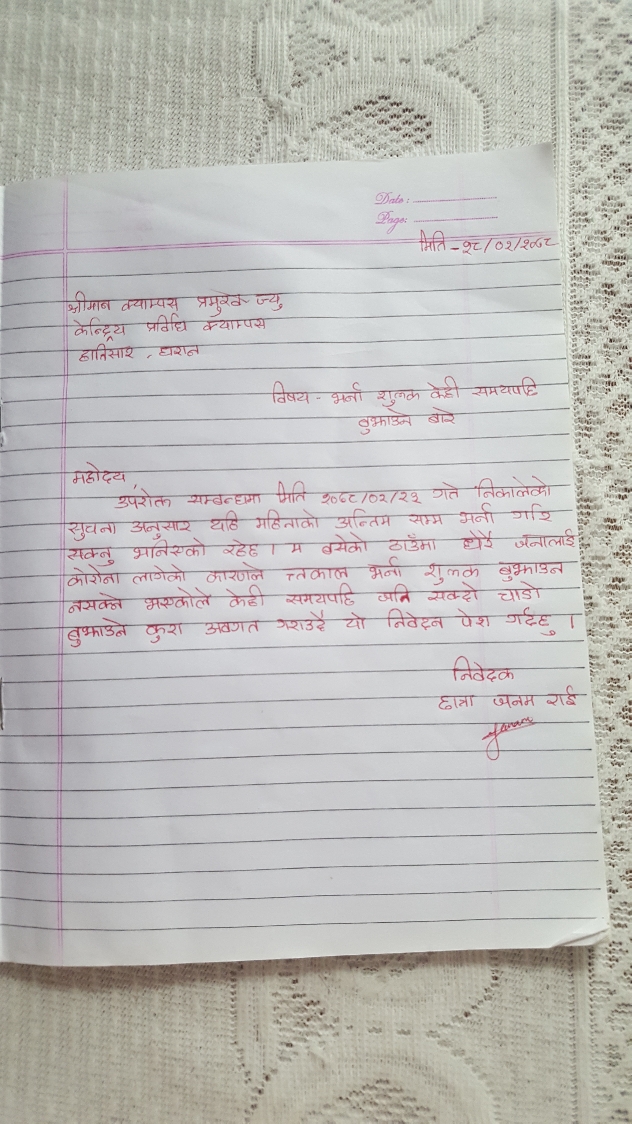 Date :
Page:
मिति - २८/०२/२०७८
श्रीमान क्याम्पस प्रमुख ज्यु
केन्द्रिय प्रविधि क्याम्पस
हात्तिसार , धरान
विषय - भर्ना शुल्क केही समयपछि
बुझाउने बारे
महोदय,
उपरोक्त सम्बन्धमा मिति २०७८/०२/२३ गते निकालेको
सुचना अनुसार यहि महिनाको अन्तिम सम्म भर्ना गरि
सक्नु भनिएको रहेछ । म बसेको ठाउँमा धेरै जनालाई
कोरोना लागेको कारणले तत्काल भर्ना शुल्क बुझाउन
नसक्ने भएकोले केही समयपछि जति सक्दो चाडो
बुझाउने कुरा अवगत गराउदै यो निवेदन पेश गर्दछु ।
निवेदक
छात्रा जनम राई
Janam